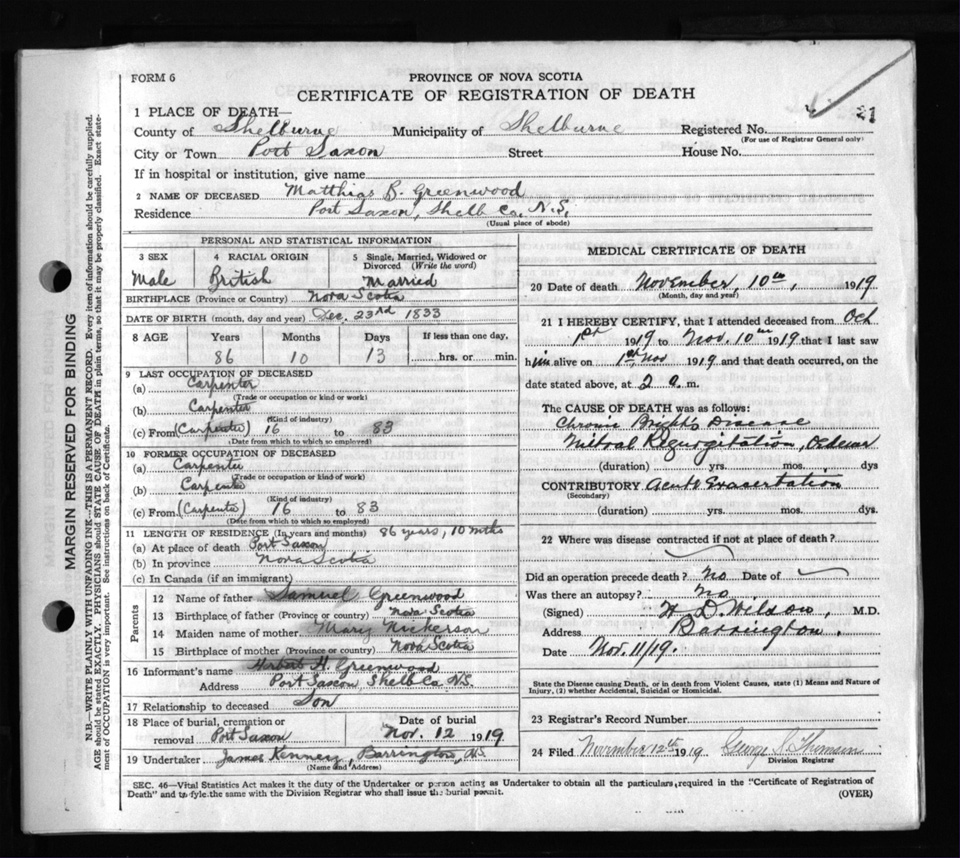 21
FORM 6
PROVINCE OF NOVA SCOTIA
CERTIFICATE OF REGISTRATION OF DEATH
1 PLACE OF DEATH—
County of Shelburne Municipality of Shelburne Registered No.
(For use of Registrar General only)
City or Town Port Saxon Street House No.
If in hospital or institution, give name
2 NAME OF DECEASED Matthias B. Greenwood
Residence Port Saxon, Shelb Co. N.S.
(Usual place of abode)
PERSONAL AND STATISTICAL INFORMATION
3 SEX 4 RACIAL ORIGIN 5 Single, Married, Widowed or Divorced (Write the word)
Male British Married
BIRTHPLACE (Province or Country) Nova Scotia
DATE OF BIRTH (month, day and year) Dec. 23rd 1833
8 AGE Years Months Days If less than one day,
86 10 13 hrs. or min.
9 LAST OCCUPATION OF DECEASED
(a) Carpenter
(Trade or occupation or kind or work)
(b) Carpenter
(Kind of industry)
(c) From (Carpenter) 16 to 83
(Date from which to which so employed)
10 FORMER OCCUPATION OF DECEASED
(a) Carpenter
(Trade or occupation or kind of work)
(b) Carpenter
(Kind of industry)
(c) From (Carpenter) 16 to 83
(Date from which to which so employed)
11 LENGTH OF RESIDENCE (In years and months) 86 years, 10 mths
(a) At place of death Port Saxon
(b) In province Nova Scotia
(c) In Canada (if an immigrant)
Parents
12 Name of father Samuel Greenwood
13 Birthplace of father (Province or Country) Nova Scotia
14 Maiden name of mother Mary Nickerson
15 Birthplace of mother (Province or country) Nova Scotia
16 Informant's name Herbert H. Greenwood
Address Port Saxon, Shelb Co. N.S.
17 Relationship to deceased Son
18 Place of burial, cremation or removal Port Saxon Date of burial Nov. 12 1919
19 Undertaker James Kenney, Barrington, N.S.
(Name and Address)
MEDICAL CERTIFICATE OF DEATH
20 Date of death November, 10th, 1919
(Month, day and year)
21 I HEREBY CERTIFY, that I attended deceased from Oct
1st 1919 to Nov. 10th 1919 that I last saw
him alive on 1st, Nov 1919 and that death occurred, on the
date stated above, at 2 a. m.
The CAUSE OF DEATH was as follows:
Chronic Bright's Disease
Mitral Regurgitation, Oedema
(duration) yrs. mos. dys
CONTRIBUTORY Acute Exasertation
(Secondary)
(duration) yrs. mos. dys.
22 Where was disease contracted if not at place of death?
Did an operation precede death? No Date of
Was there an autopsy? No
(Signed) H. D. Wilson, M.D.
Address Barrington.
Date Nov. 11/19.
State the Disease causing Death, or in death from Violent Causes, state (1) Means and Nature of
Injury, (2) whether Accidental, Suicidal or Homicidal.
23 Registrar's Record Number
24 Filed November 12th 1919 George
Division Registrar
SEC. 46—Vital Statistics Act makes it the duty of the Undertaker or person acting as Undertaker to obtain all the particulars required in the "Certificate of Registration of
Death" and to fyle the same with the Division Registrar who shall issue the burial permit.
(OVER)
MARGIN RESERVED FOR BINDING
N.B.—WRITE PLAINLY WITH UNFADING INK—THIS IS A PERMANENT RECORD. Every item of information should be carefully supplied.
AGE should be stated EXACTLY. PHYSICIANS should STATE CAUSE OF DEATH in plain terms, so that it may be properly classified. Exact state-
ment of OCCUPATION is very important. See instructions on back of Certificate.